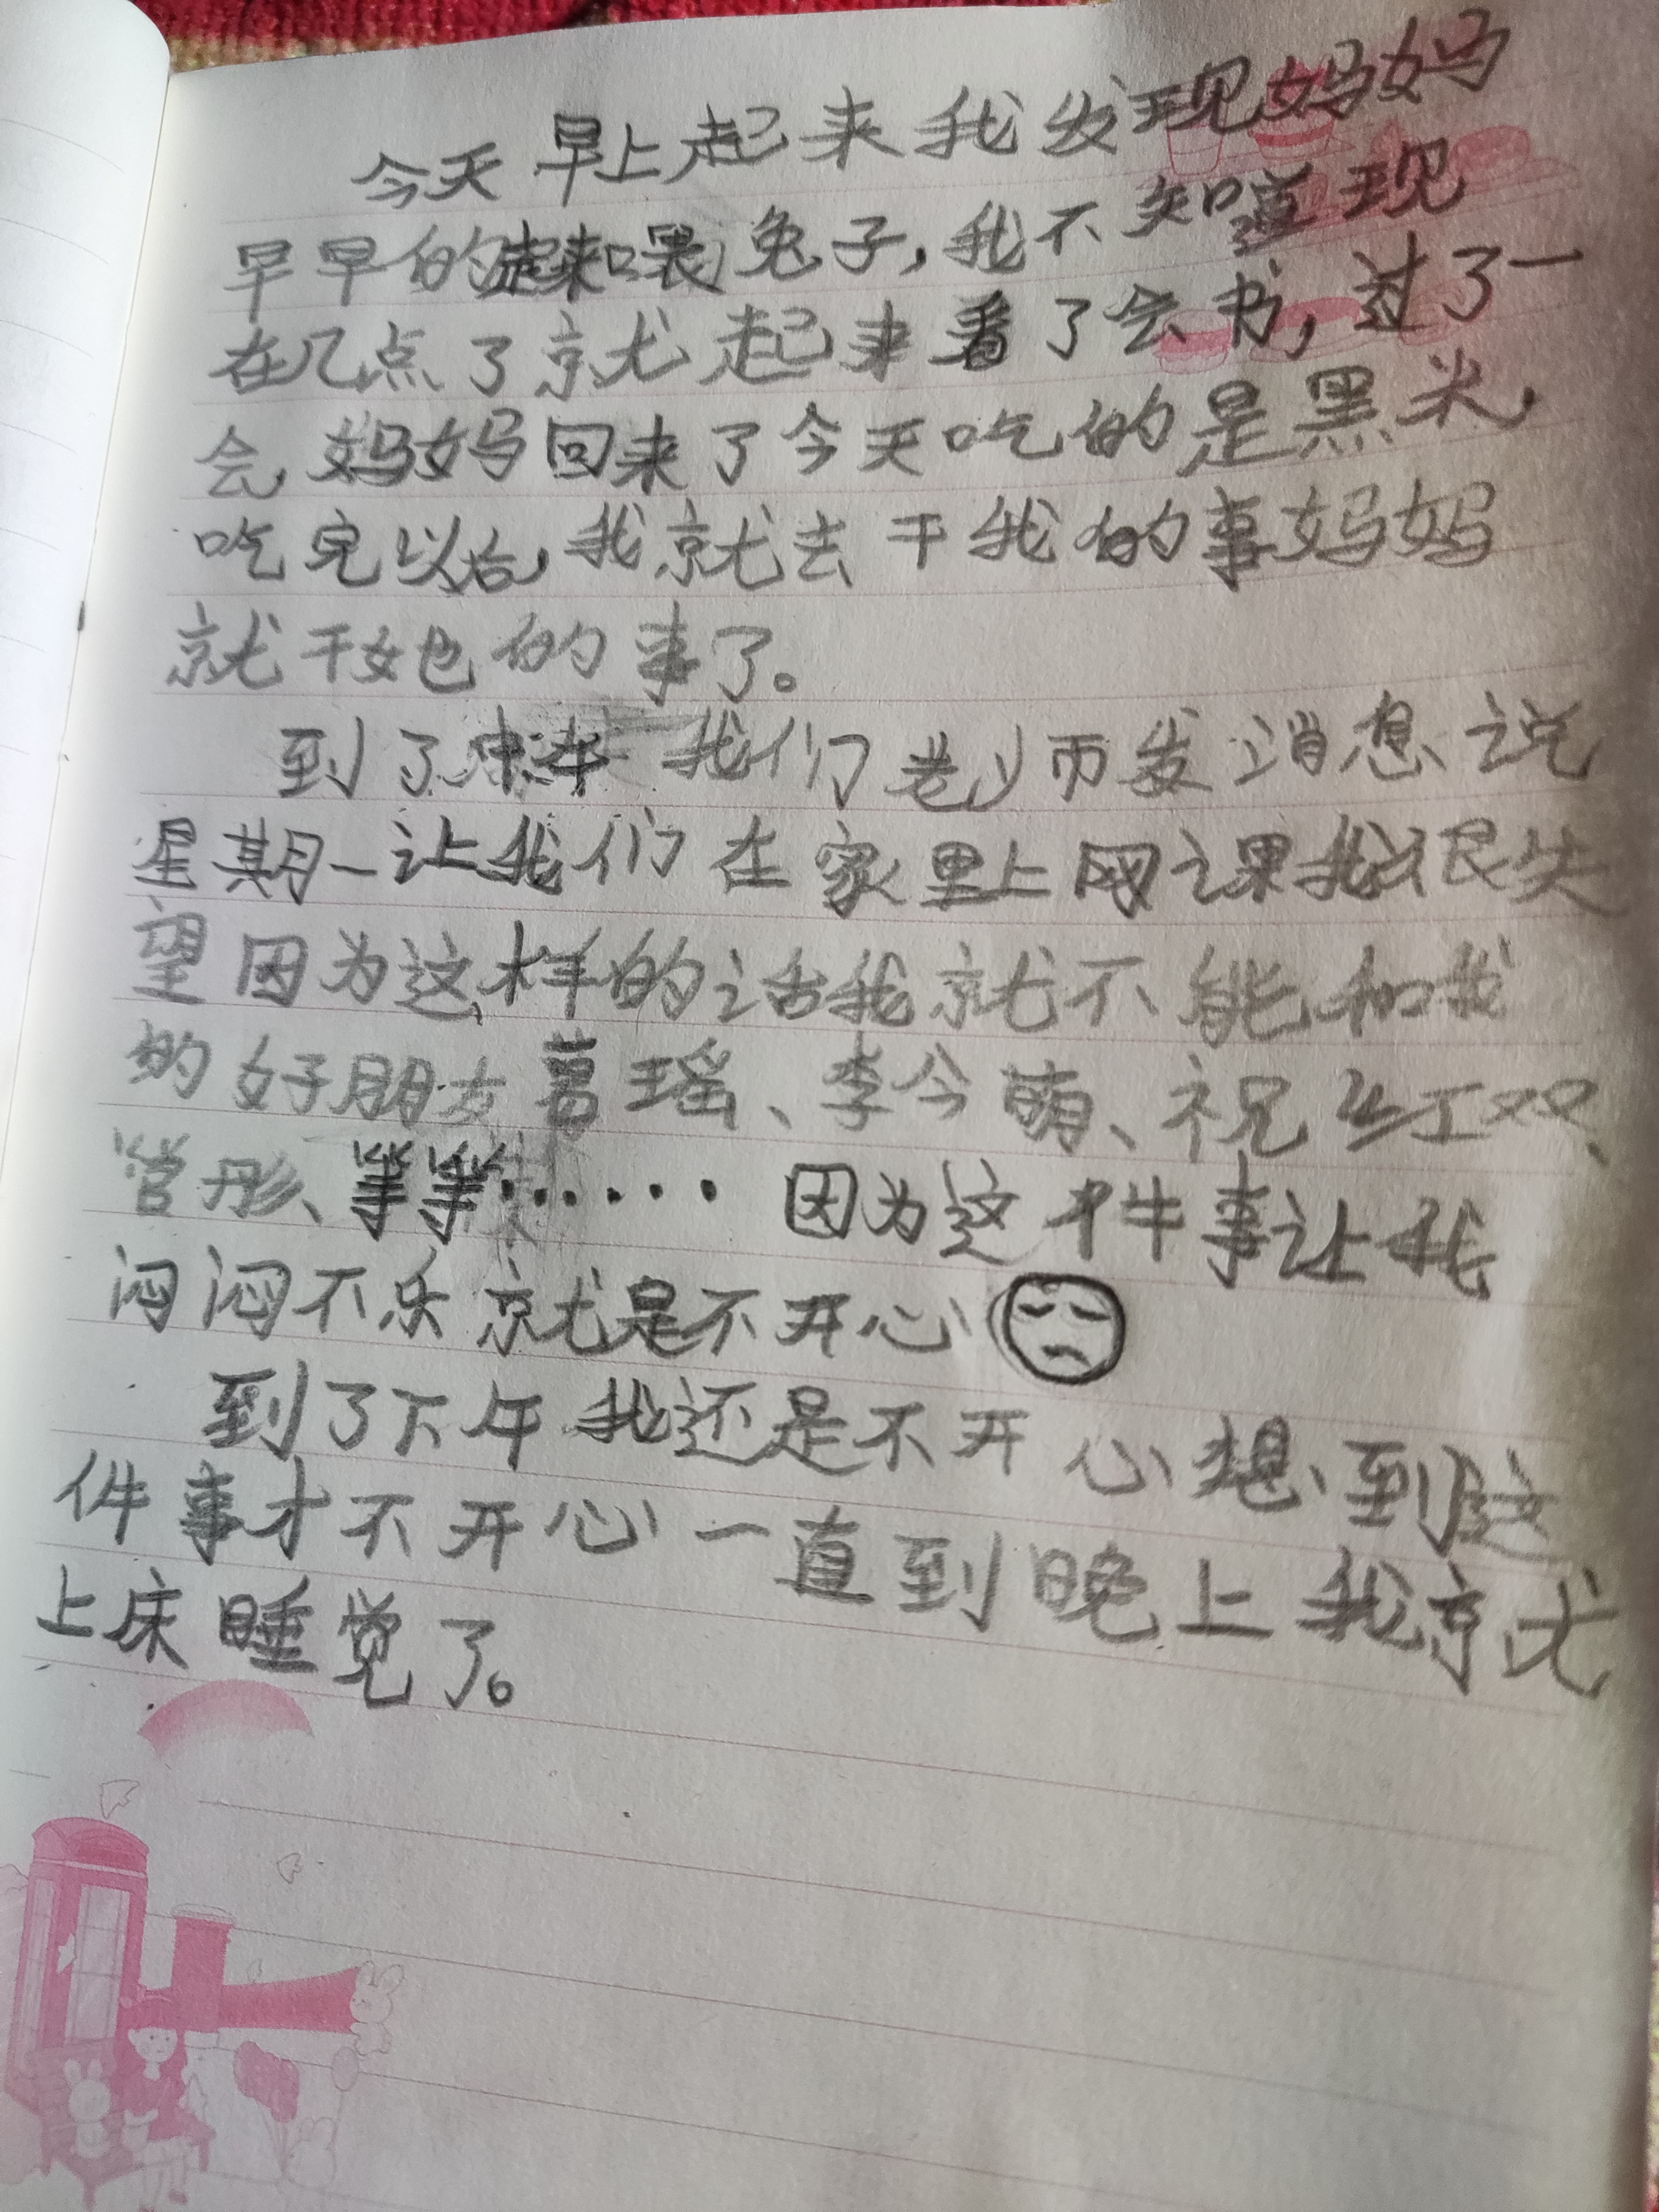 今天早上起来我发现妈妈
早早的起来喂兔子,我不知道现
在几点了就起来看了会书,过了一
会,妈妈回来了今天吃的是黑米,
吃完以后,我就去干我的事妈妈
就干她的事了。
到了中午我们老师发消息说
星期一让我们在家里上网课我很失
望因为这样的话我就不能和我
的好朋友葛瑶、李今萌、祝红双、
管彤、等等……因为这件事让我
闷闷不乐就是不开心
到了下午我还是不开心想到这
件事才不开心一直到晚上我就
上床睡觉了。